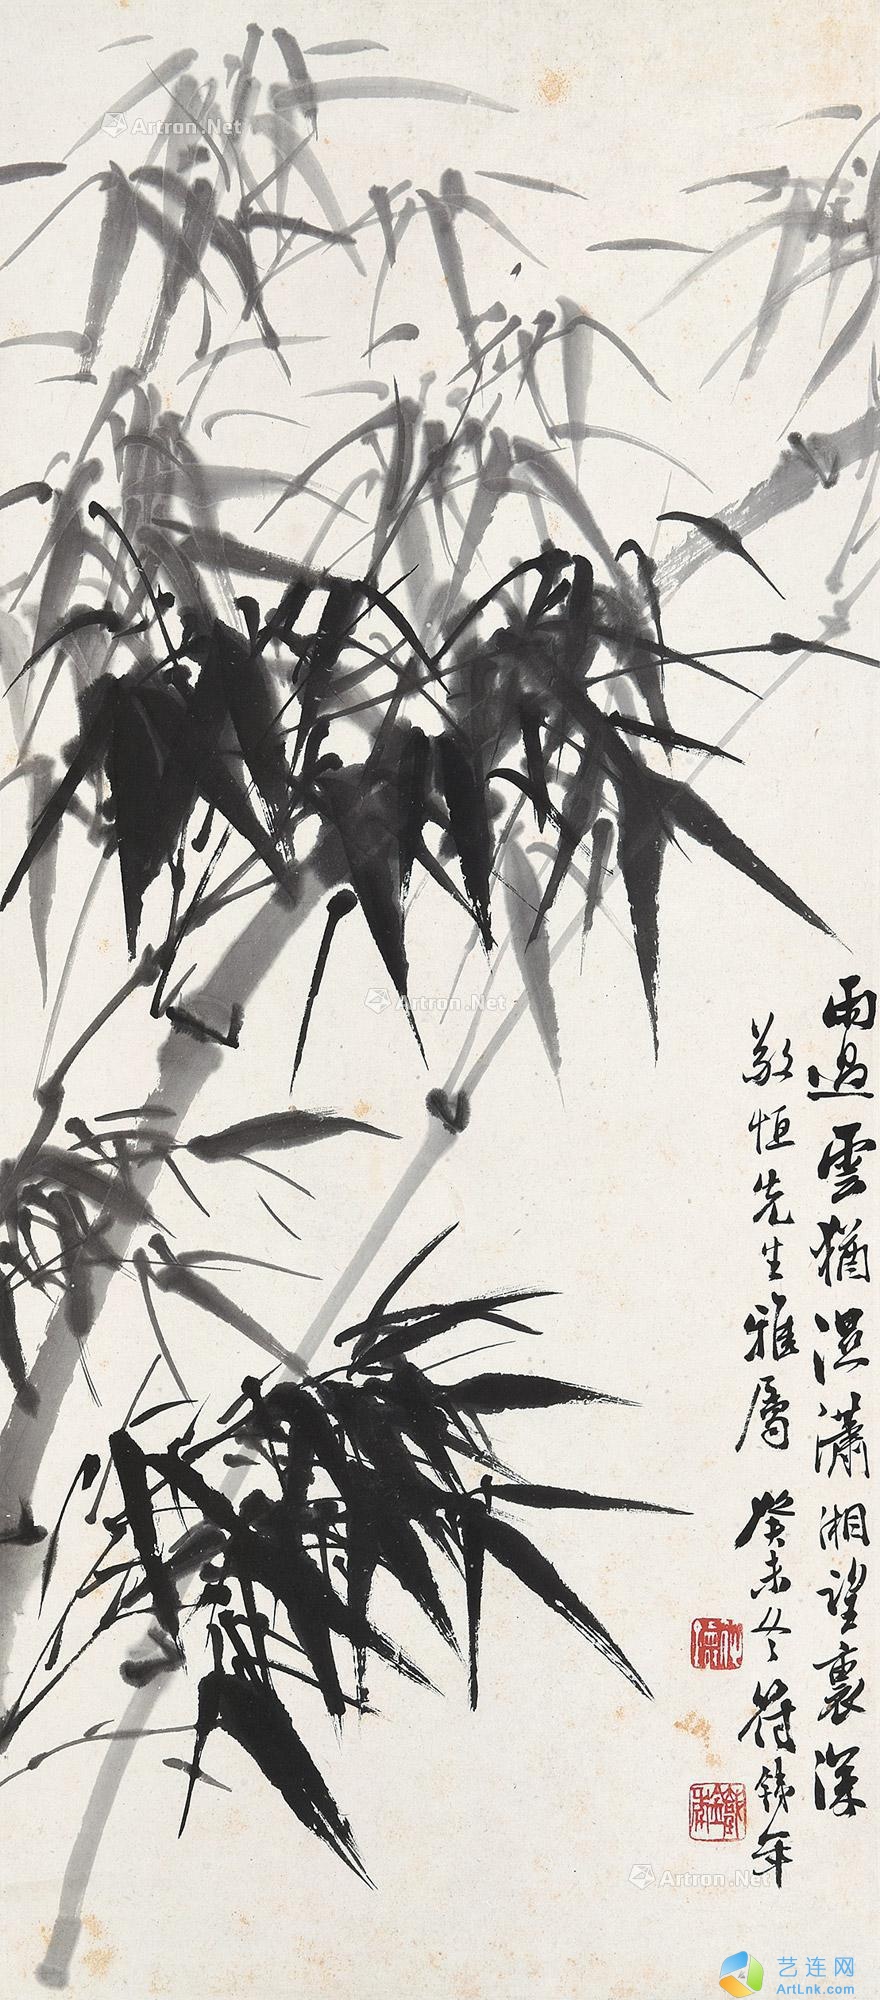 雨過雲猶濕瀟湘望裏深
敬恒先生雅屬 癸未冬 符鐵年
Artron.Net
Artron.Net
Artron.Net
艺连网
ArtLnk.com